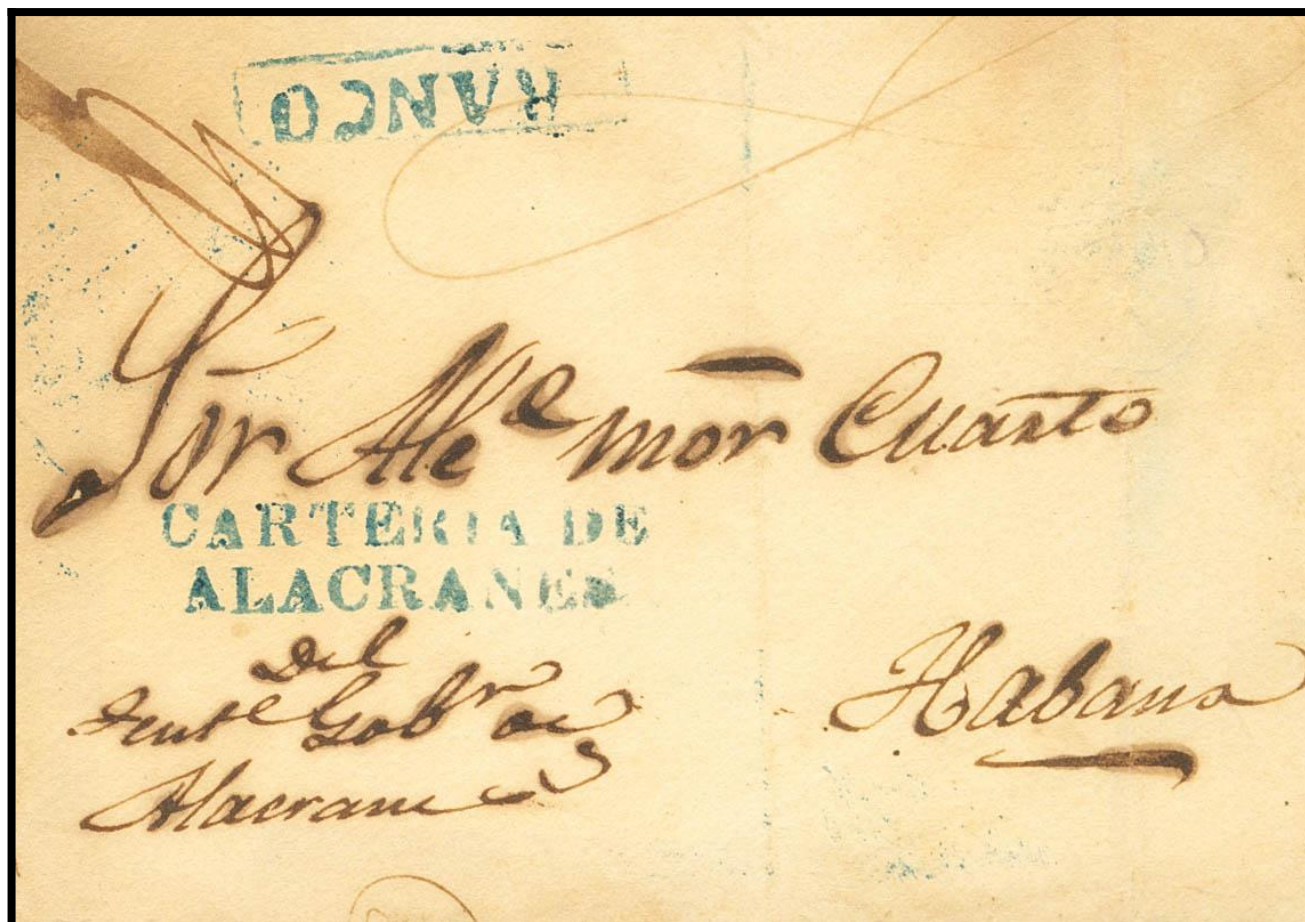 RANCO
Sor Alce mor Cuarto
CARTERIA DE
ALACRANES
Del
Tente Gobor de
Alacranes
Habana